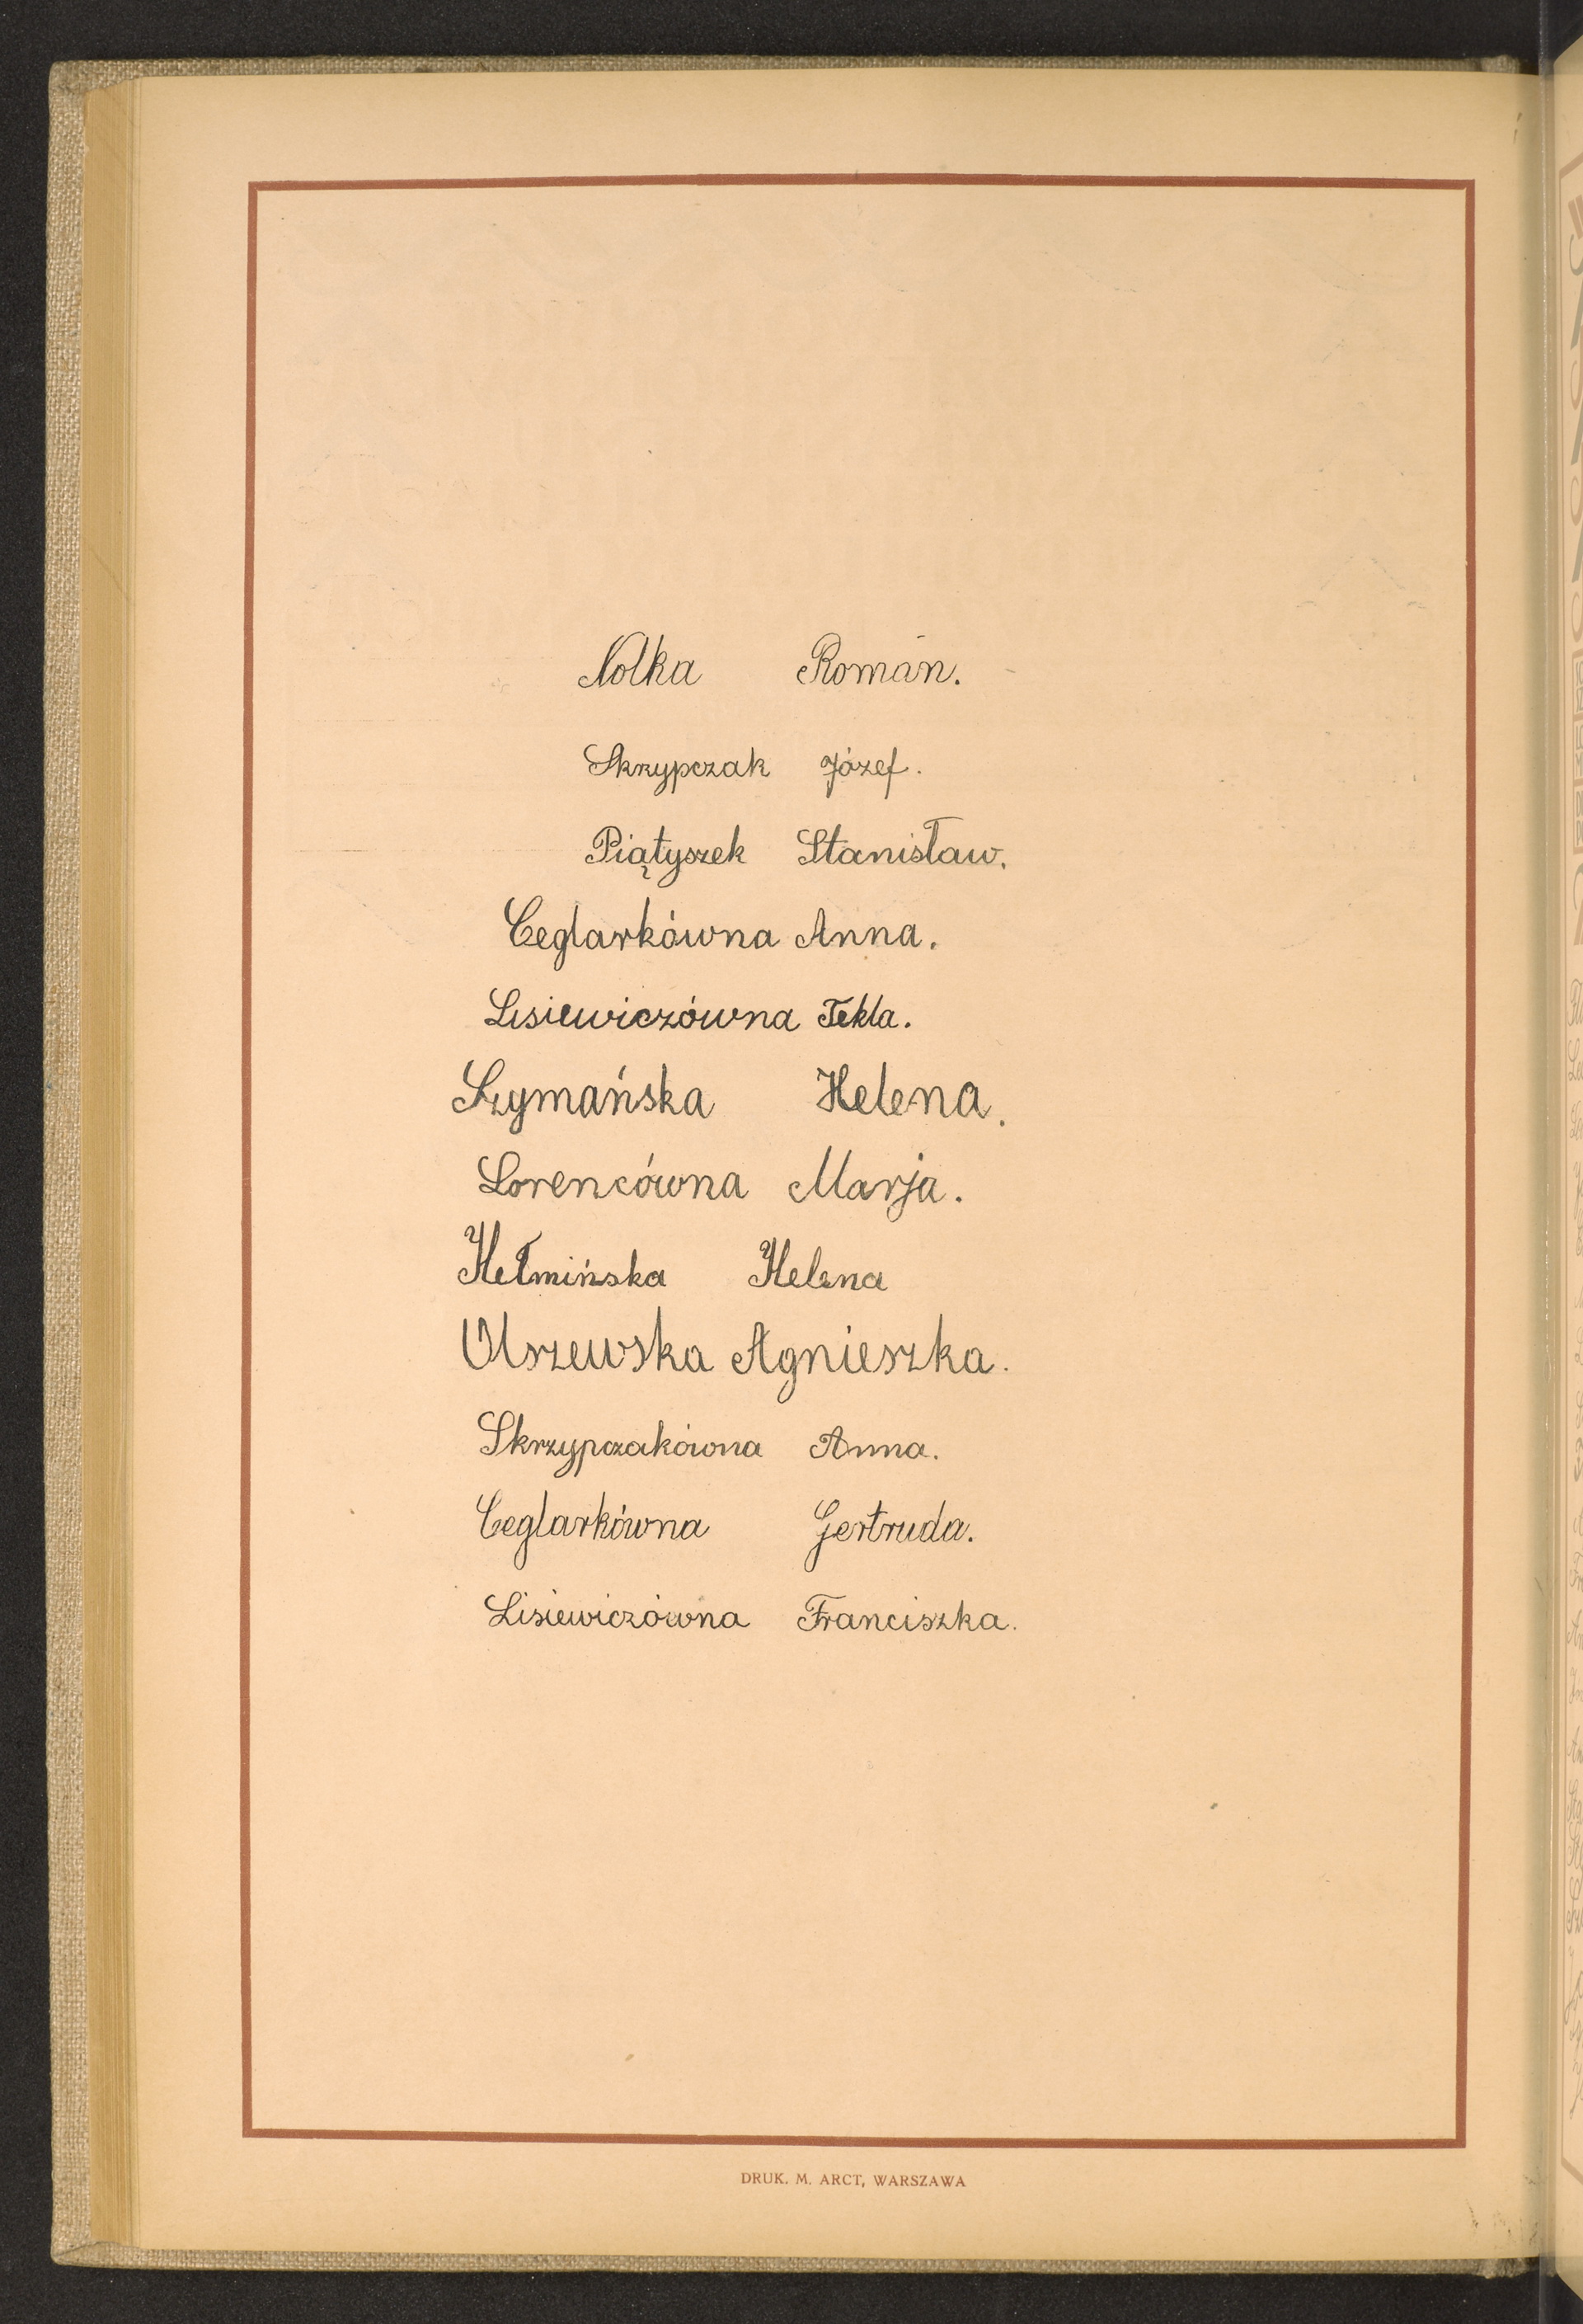 Nolka Roman.
Skrzypczak Józef.
Piątyszek Stanisław.
Ceglarkówna Anna.
Lisiewiczówna Tekla.
Szymańska Helena.
Lorencówna Marja.
Hełmińska Helena
Olszewska Agnieszka.
Skrzypczakówna Anna.
Ceglarkówna Gertruda.
Lisiewiczówna Franciszka.
DRUK. M. ARCT, WARSZAWA